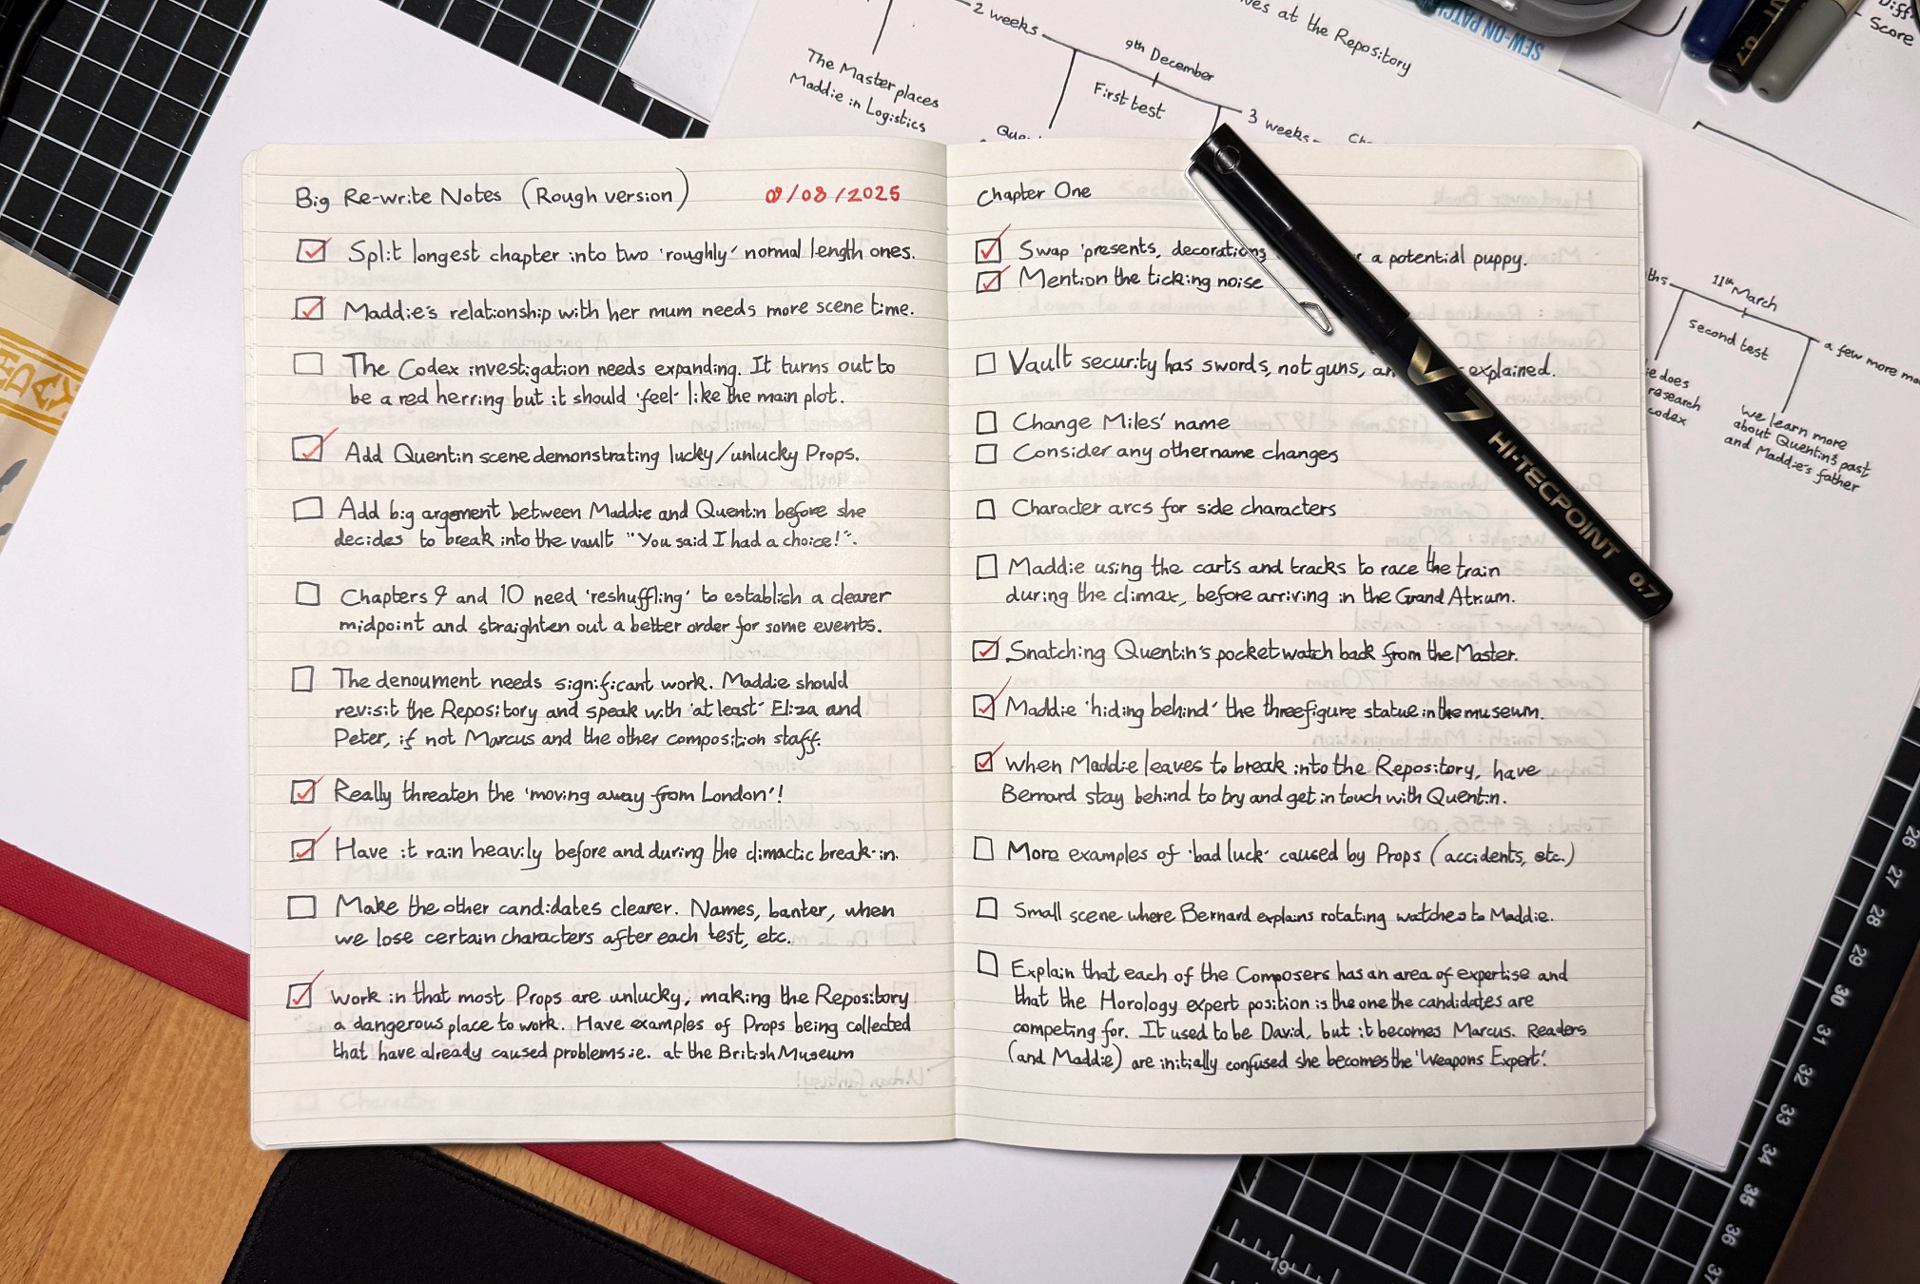 2 weeks
The Master places
Maddie in Logistics
9th December
First test
3 weeks
at the Repository
SEW-ON PATCH
0.7
Score
Big Re-write Notes (Rough version)
08/08/2025
Split longest chapter into two 'roughly' normal length ones.
Maddie's relationship with her mum needs more scene time.
The Codex investigation needs expanding. It turns out to
be a red herring but it should 'feel' like the main plot.
Add Quentin scene demonstrating lucky/unlucky Props.
Add big argement between Maddie and Quentin before she
decides to break into the vault "You said I had a choice!".
Chapters 9 and 10 need 'reshuffling' to establish a clearer
midpoint and straighten out a better order for some events.
The denoument needs significant work. Maddie should
revisit the Repository and speak with 'at least' Eliza and
Peter, if not Marcus and the other composition staff.
Really threaten the 'moving away from London'!
Have it rain heavily before and during the climactic break-in.
Make the other candidates clearer. Names, banter, when
we lose certain characters after each test, etc.
work in that most Props are unlucky, making the Repository
a dangerous place to work. Have examples of Props being collected
that have already caused problems i.e. at the British Museum
Chapter One
Swap 'presents, decorations a potential puppy.
Mention the ticking noise
Vault security has swords, not guns, explained.
Change Miles' name
Consider any other name changes
Character arcs for side characters
Maddie using the carts and tracks to race the train
during the climax, before arriving in the Grand Atrium.
Snatching Quentin's pocket watch back from the Master.
Maddie 'hiding behind' the three figure statue in the museum.
when Maddie leaves to break into the Repository, have
Bernard stay behind to try and get in touch with Quentin.
More examples of 'bad luck' caused by Props (accidents, etc.)
Small scene where Bernard explains rotating watches to Maddie.
Explain that each of the Composers has an area of expertise and
that the Horology expert position is the one the candidates are
competing for. It used to be David, but it becomes Marcus. Readers
(and Maddie) are initially confused she becomes the 'Weapons Expert'.
V7
HI-TECPOINT 0.7
11th March
second test
a few more
does
research
codex
we learn more
about Quentin's past
and Maddie's father
26
27
28
29
30
31
32
33
34
35
36
37
19